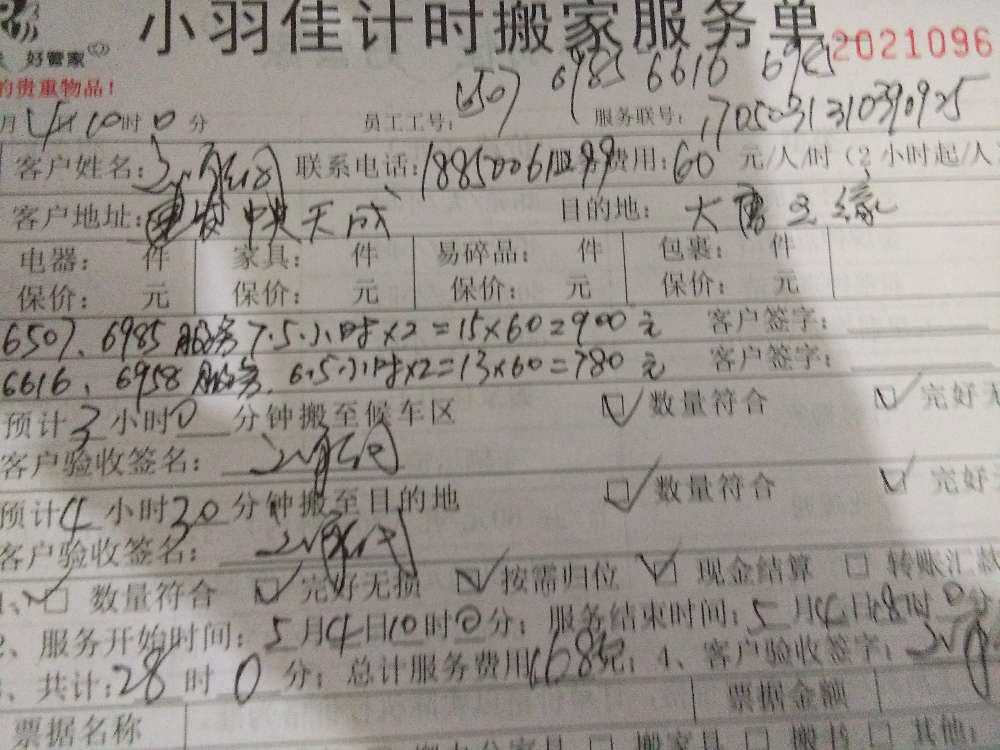 小羽佳计时搬家服务单
好管家
2021096
的贵重物品！
6507 6985 6616 6985
月4日10时0分 员工工号： 服务联号：1705031310390925
客户姓名： 联系电话： 费用：60元/人/时（2小时起/人
客户地址： 中央天成 目的地：大唐
电器： 件 家具： 件 易碎品： 件 包裹： 件
保价： 元 保价： 元 保价： 元 保价： 元
6507、6985服务7.5小时×2=15×60=900元 客户签字：
6616、6958服务.6.5小时×2=13×60=780元 客户签字：
预计3小时0分钟搬至候车区 数量符合 完好无
客户验收签名：
预计4小时30分钟搬至目的地 数量符合 完好
客户验收签名：
数量符合 完好无损 按需归位 现金结算 转账汇款
2、服务开始时间：5月4日10时0分；服务结束时间：5月4日18时0分
共计：28时0分；总计服务费用1680元；4、客户验收签字：
票据名称 票据金额
搬家具 其他：